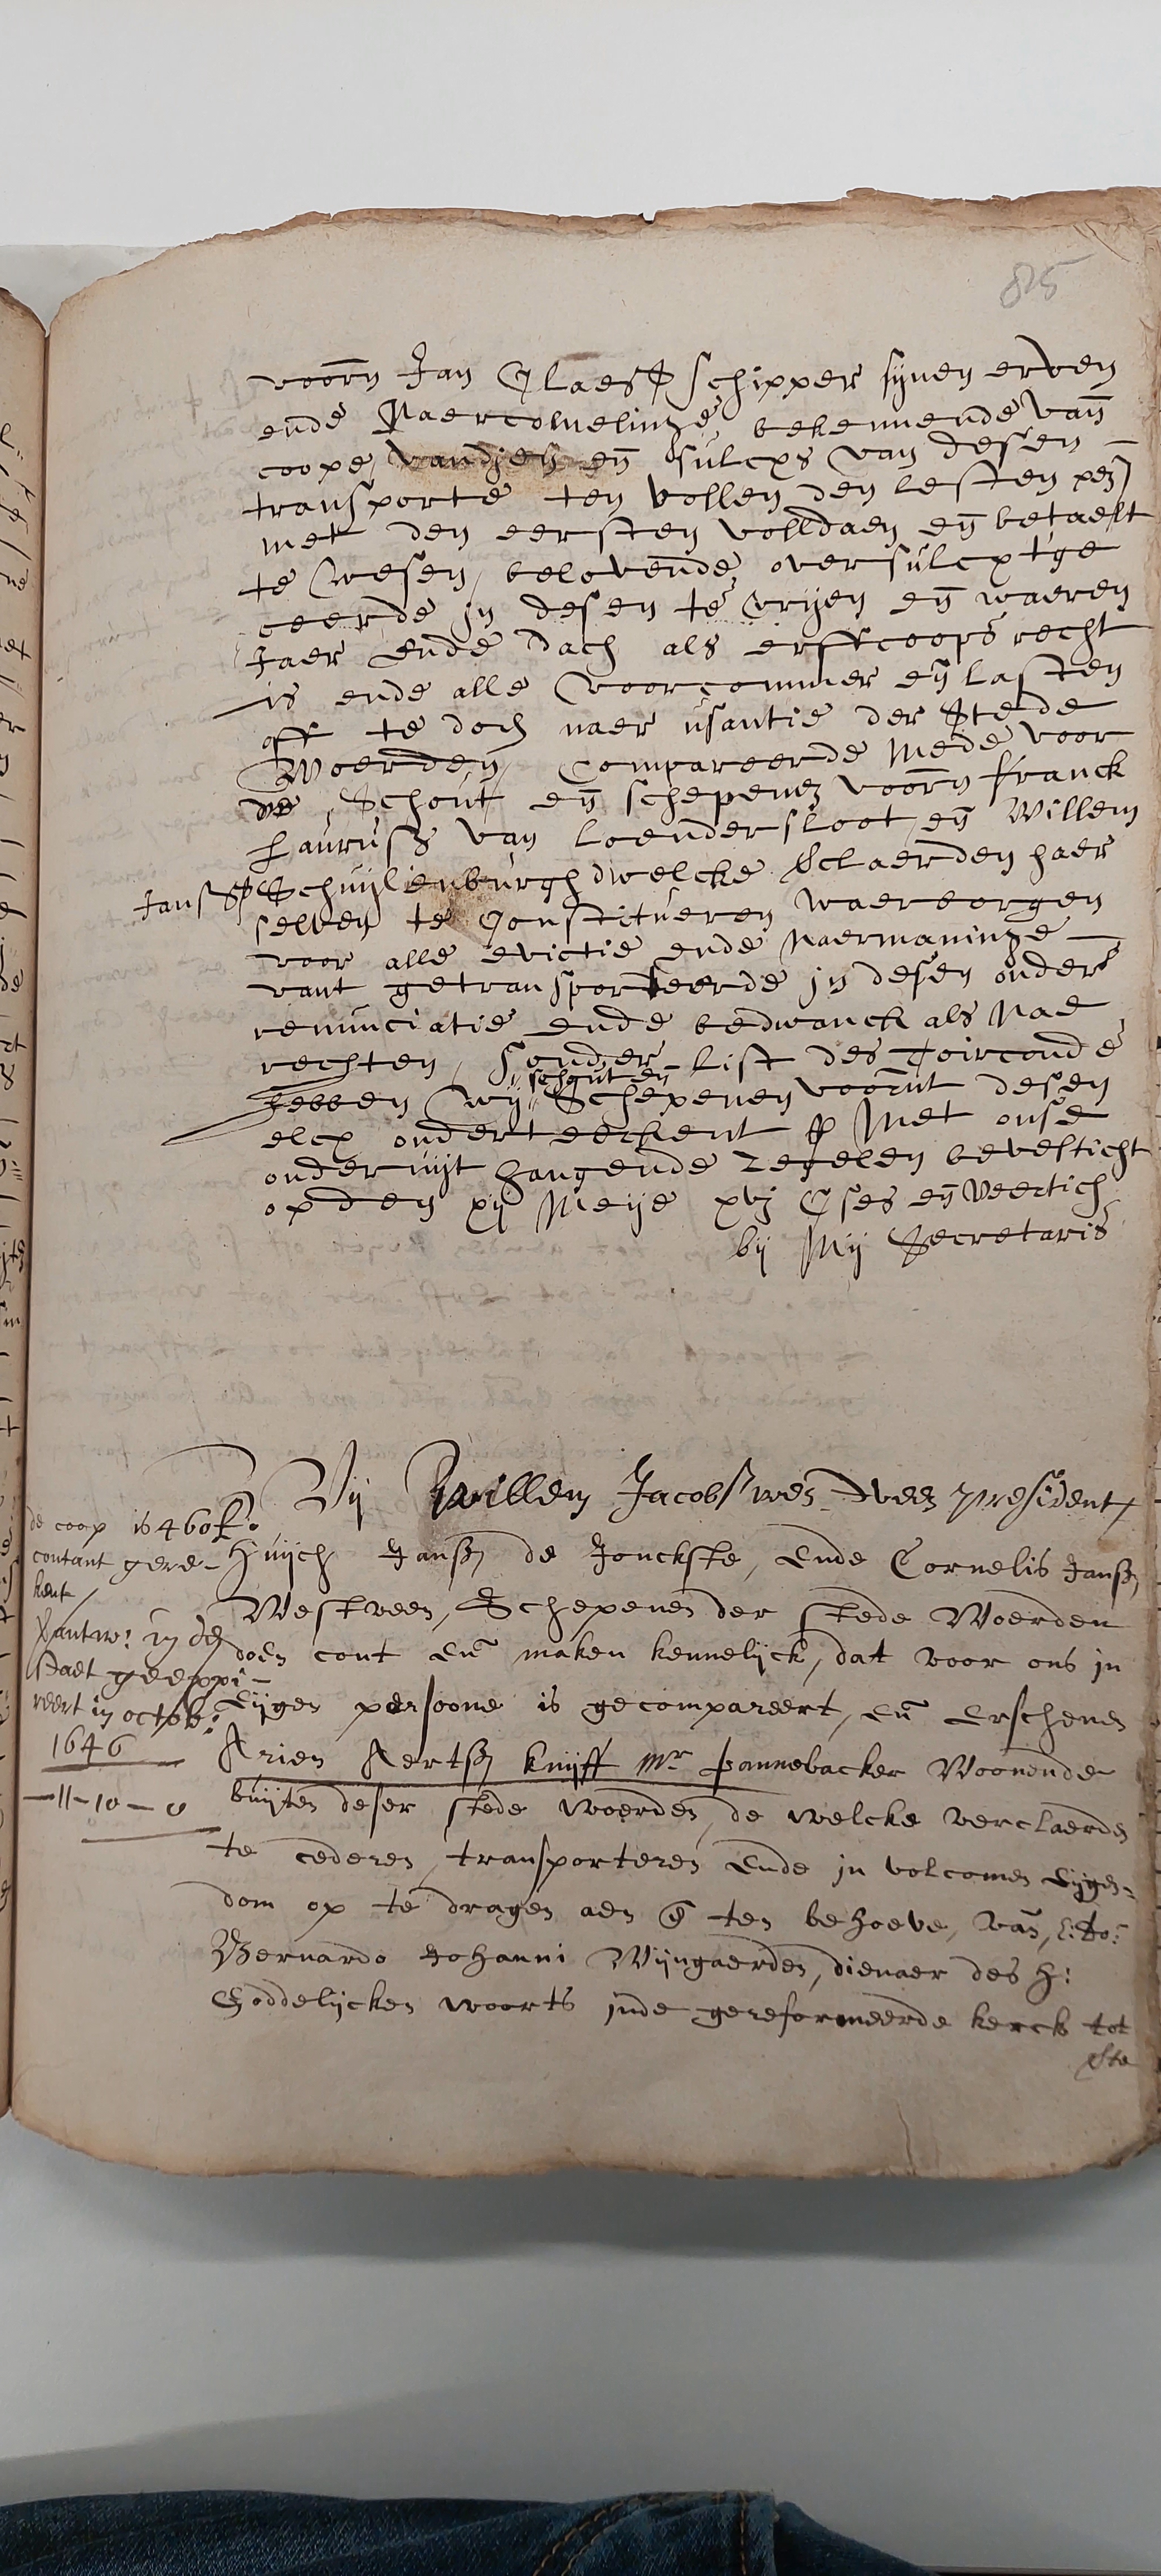 85
voorn Jan Claess schipper sijnen erven
ende Naercomelinge, bekennende van
coope vandien en sulcxs van desen
transporte ten vollen den lesten pen
met den eersten volldaen en betaelt
te wesen, belovende oversulcx tge
ceerde in desen te vrijen en waeren
Jaer ende dach als erffcoops recht
is ende alle voorcommer en lasten
off te doen naer usantie der Stede
Woerden, Compareerde mede voor
de Schout en schepenen voorn Franck
Lauruss van Loendersloot en Willem
Janss Schuijlenburgh dwelcke Sclaerden haer
selven te Constitueren waerborgen
voor alle evictie ende Naermaninge
vant getransporteerde in desen onder
renunciatie ende bedwanck als Nae
rechten, Sonder list des Toirconde
schout en
hebben wij Schepenen voornt desen
elcx onderteeckent en Met onse
onder uijt hangende zegelen bevesticht
opden xij Meije xvj Cses en Veertich
bij Mij Secretaris
Wij Willem Jacobss president
Huijch Janss de Jonckste, Ende Cornelis Janss
Westveen, Schepenen der stede Woerden
doen cont En maken kennelijck, dat voor ons in
Eijgen persoone is gecompareert, En Erschenen
Arien Aertss Knijff Mr pannebacker Woonende
buijten deser stede woerden, de welcke verclaerden
te cederen, transporteren Ende in volcomen Eijgen-
dom op te dragen aen en ten behoeve, van,
Bernardo Johanni Wijngaerden, dienaer des H:
Goddelijcken woorts inde gereformeerde kerck tot
de coop is 460 f.
contant gere-
kent
in de
Stadt geexpi-
reert in octob:
1646
-11-10-0